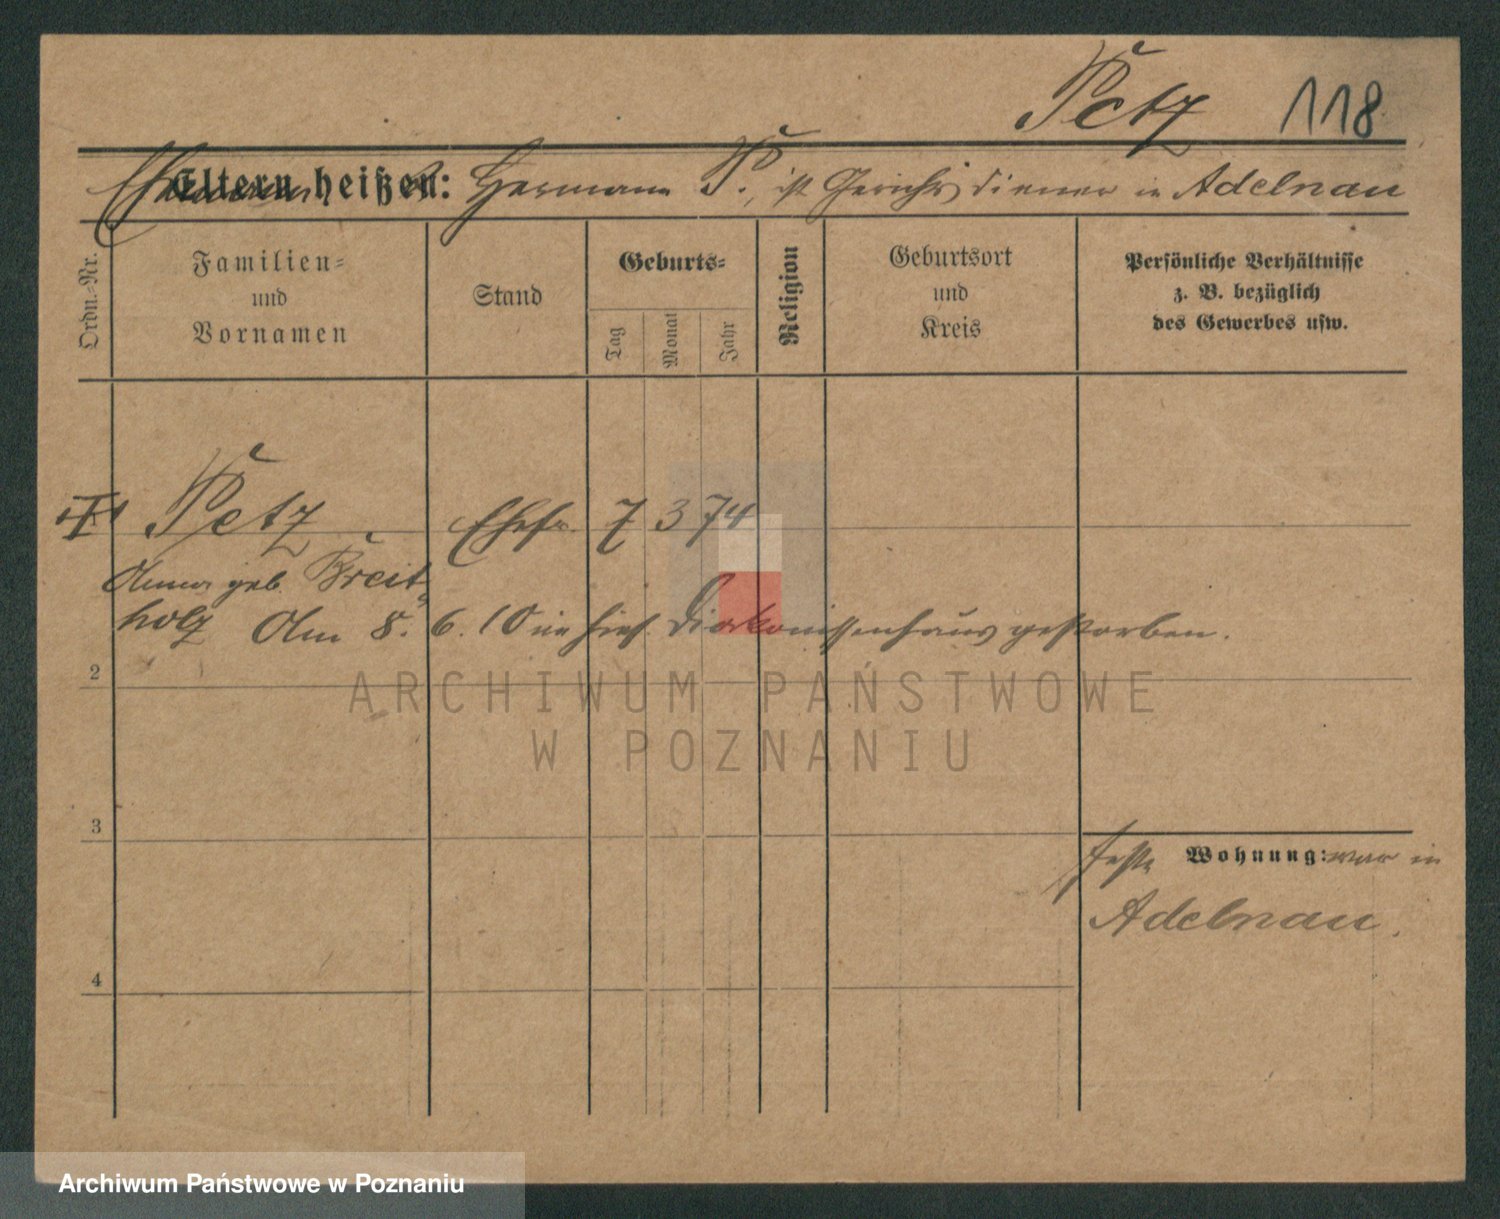 Petz 118
Eltern heißen: Ehemann Hermann P., ist Gerichtsdiener in Adelnau
Ordn.-Nr.
Familien-
und
Vornamen
Stand
Geburts-
Tag
Monat
Jahr
Religion
Geburtsort
und
Kreis
Persönliche Verhältnisse
z. B. bezüglich
des Gewerbes usw.
Petz Ehefr. 7 3 74
Anna geb. Breit-
holz Am 8. 6. 10 im hies. Diakonissenhaus gestorben.
2
ARCHIWUM PAŃSTWOWE
W POZNANIU
3
feste Wohnung: war in
Adelnau.
4
Archiwum Państwowe w Poznaniu